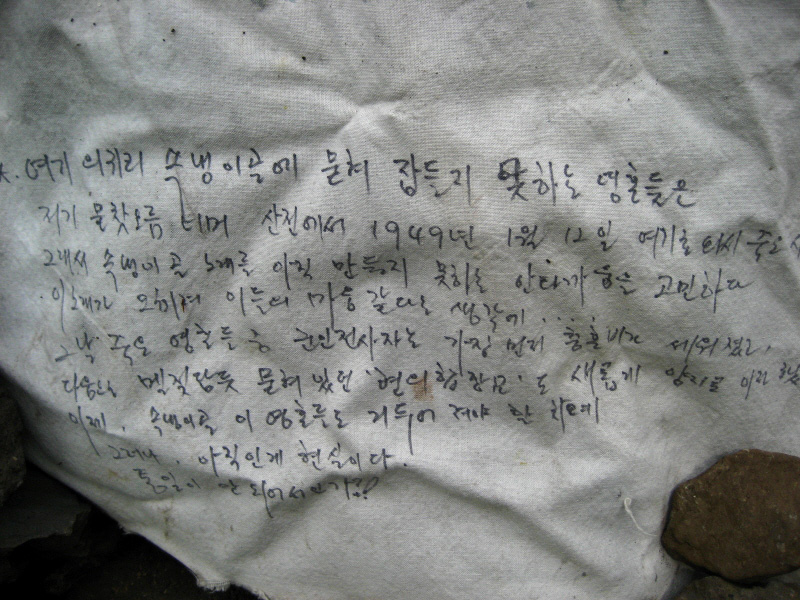 여기 의귀리 속냉이골에 묻혀 잠들지 못하는 영혼들은
저기 물찻오름 너머 산전에서 1949년 1월 12일 여기로 다시
그래서 속냉이골 노래를 아직 만들지 못하는 안타까움을 고민하다
이노래가 오히려 이들의 마음 같다는 생각에....
그날 죽은 영혼들 중 군인전사자는 가장 먼저 충혼비가 세워졌고,
다음으로 멜젓담듯 묻혀 있던 '현의합장묘'도 새롭게 양지로
이제, 속냉이골 이 영혼들도 거두어 져야 할 차례
그러나, 아직인게 현실이다.
통일이 안 되어서인가?